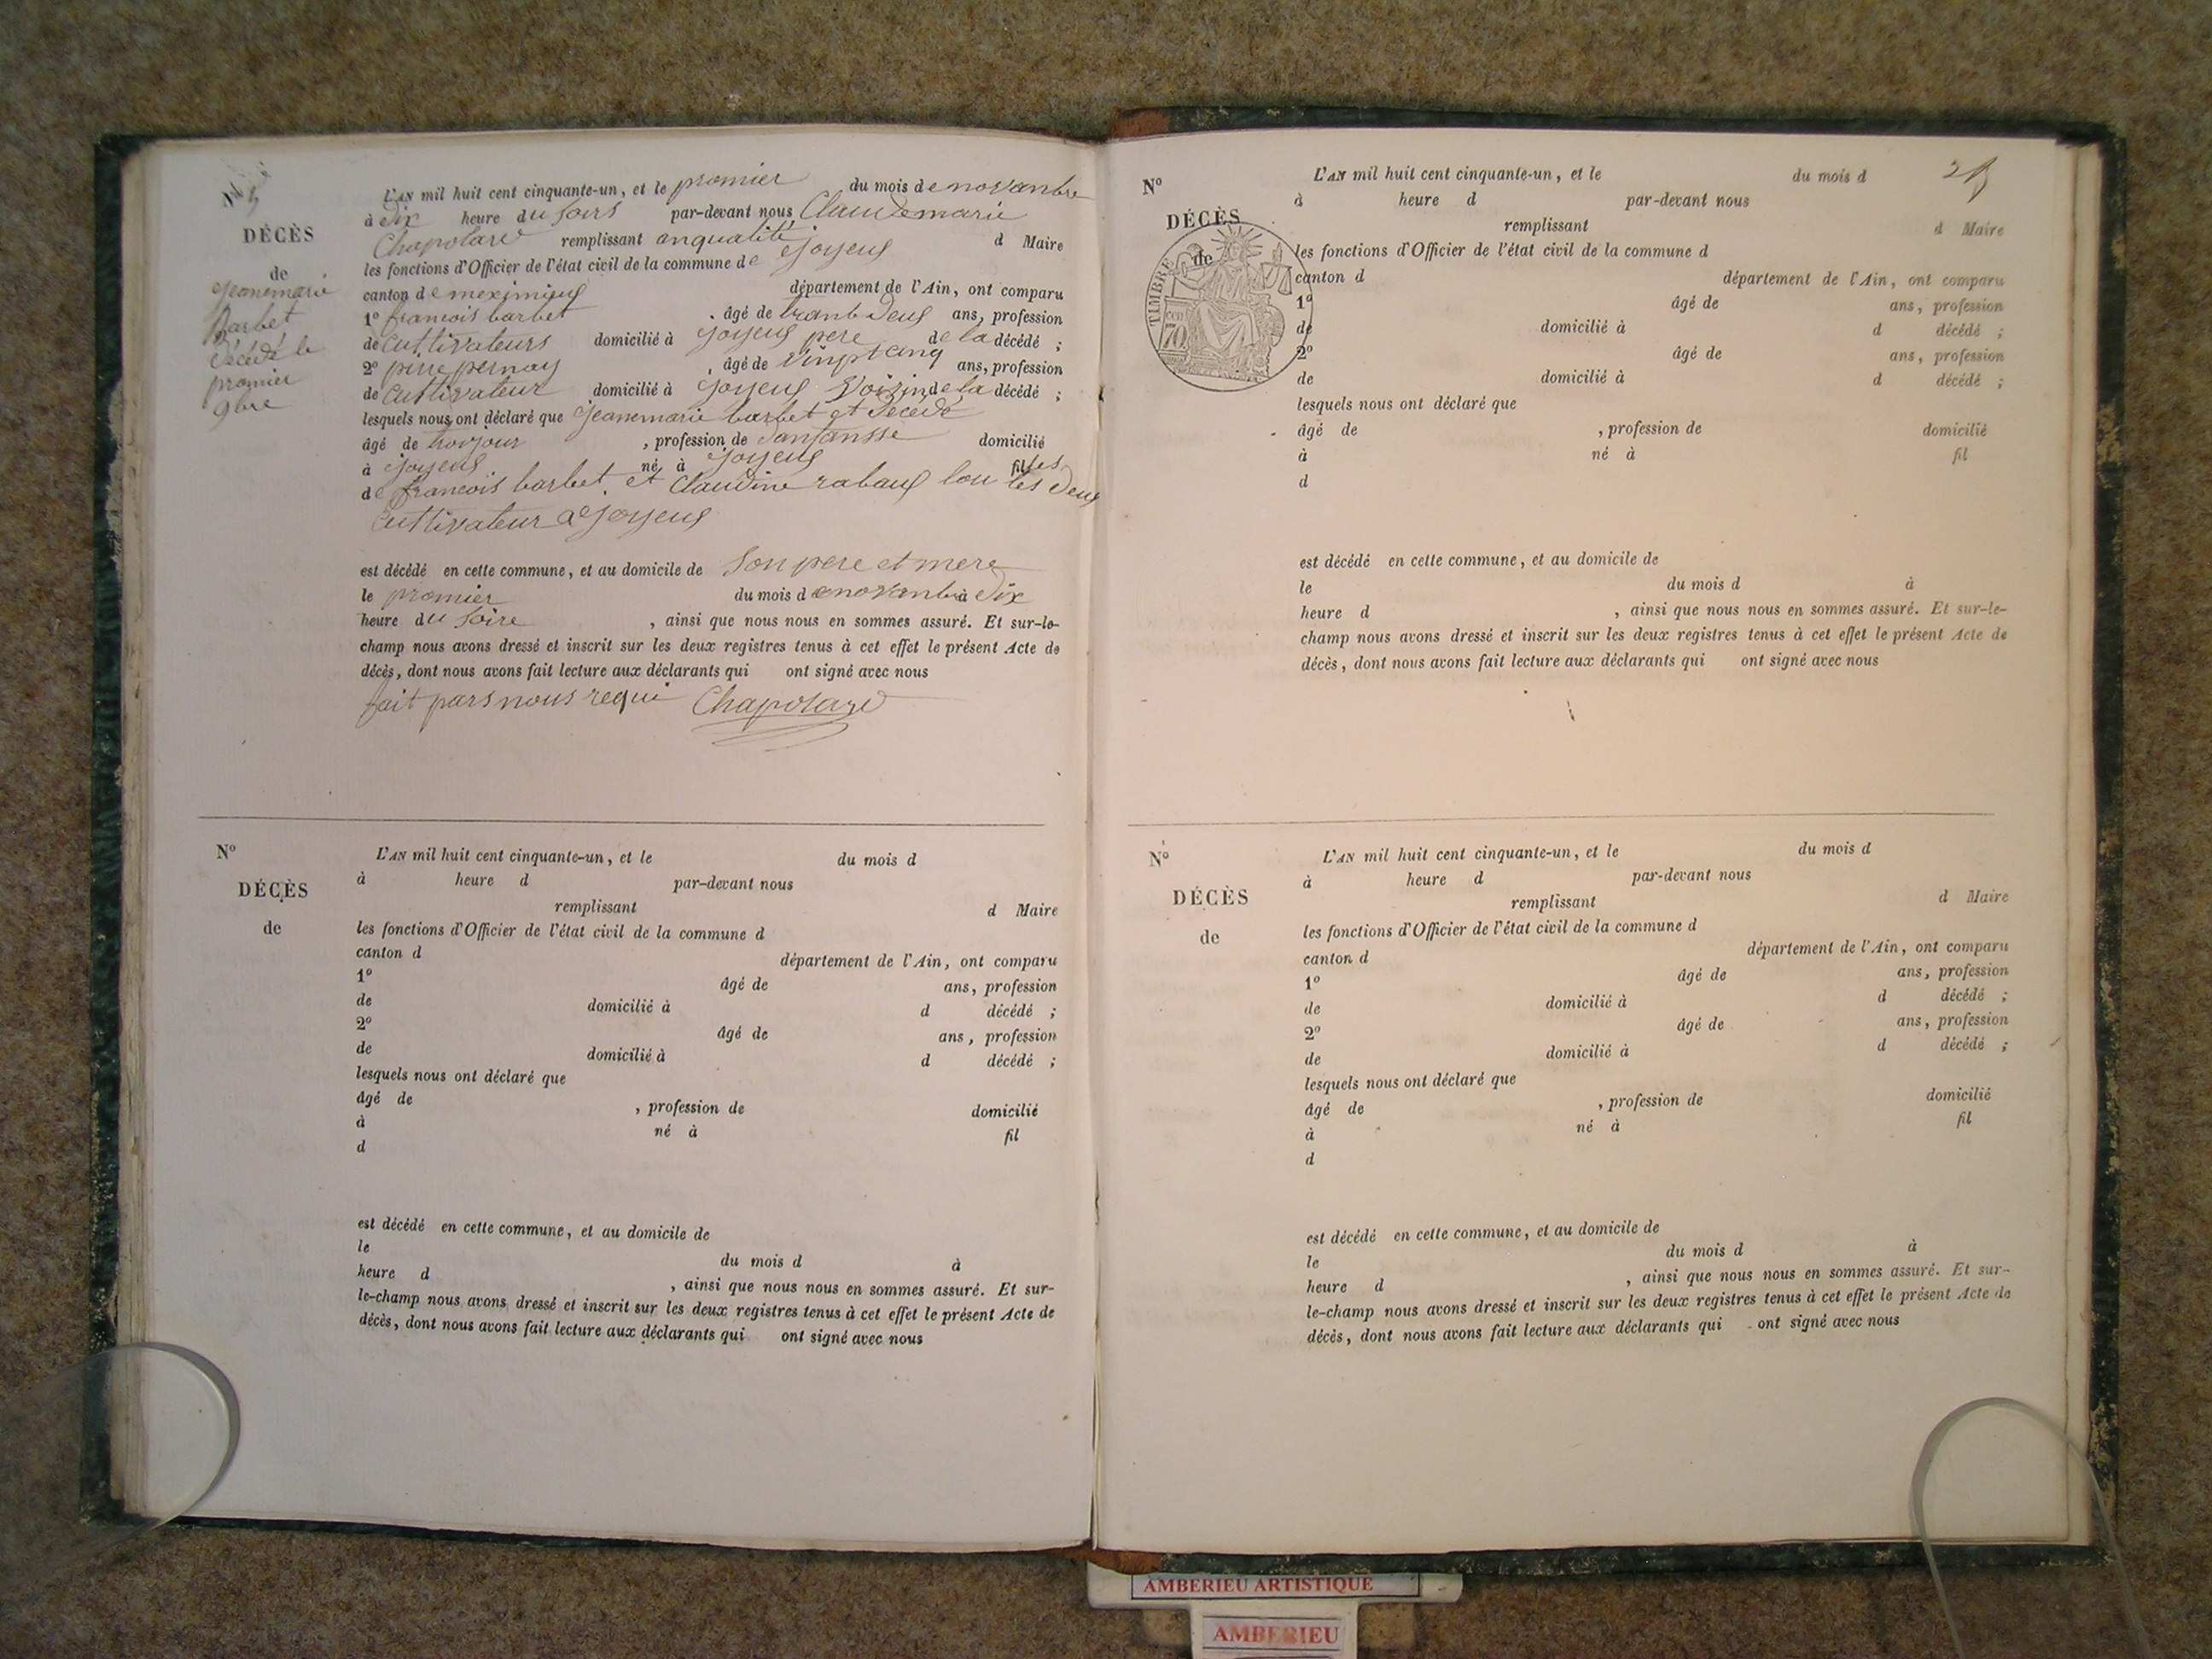 N° 5
DÉCÈS
de
jeanemarie
Barbet
décédé le
promier
9bre
L'AN mil huit cent cinquante-un, et le promier du mois de novanbre
à dix heure du soirs par-devant nous Claudemarie
Chapolard remplissant anqualité d Maire
les fonctions d'Officier de l'état civil de la commune de joyeux
canton de meximieux département de l'Ain, ont comparu
1° francois barbet âgé de trant deux ans, profession
de cultivateurs domicilié à joyeux pere de la décédé ;
2° pierre pernay, âgé de vinptcinq ans, profession
de cultivateur domicilié à joyeux voizin de la décédé ;
lesquels nous ont déclaré que jeanemarie barbet et décédé
âgé de troijour, profession de sansansse domicilié
à joyeux né à joyeux filles
de francois barbet et Claudine rabaux tou les deux
Cultivateur a joyeux
est décédé en cette commune, et au domicile de son pere et mere
le promier du mois de novanbre à dix
heure du soire, ainsi que nous nous en sommes assuré. Et sur-le-
champ nous avons dressé et inscrit sur les deux registres tenus à cet effet le présent Acte de
décès, dont nous avons fait lecture aux déclarants qui ont signé avec nous
fait pars nous requi Chapolard
N°
DÉCÈS
de
L'AN mil huit cent cinquante-un, et le du mois d
à heure d par-devant nous
remplissant d Maire
les fonctions d'Officier de l'état civil de la commune d
canton d département de l'Ain, ont comparu
1° âgé de ans, profession
de domicilié à d décédé ;
2° âgé de ans, profession
de domicilié à d décédé ;
lesquels nous ont déclaré que
âgé de , profession de domicilié
à né à fil
d
est décédé en cette commune, et au domicile de
le du mois d à
heure d , ainsi que nous nous en sommes assuré. Et sur-
le-champ nous avons dressé et inscrit sur les deux registres tenus à cet effet le présent Acte de
décès, dont nous avons fait lecture aux déclarants qui ont signé avec nous
N°
DÉCÈS
de
TIMBRE
70
L'AN mil huit cent cinquante-un, et le du mois d
à heure d par-devant nous
remplissant d Maire
les fonctions d'Officier de l'état civil de la commune d
canton d département de l'Ain, ont comparu
1° âgé de ans, profession
de domicilié à d décédé ;
2° âgé de ans, profession
de domicilié à d décédé ;
lesquels nous ont déclaré que
âgé de , profession de domicilié
à né à fil
d
est décédé en cette commune, et au domicile de
le du mois d à
heure d , ainsi que nous nous en sommes assuré. Et sur-le-
champ nous avons dressé et inscrit sur les deux registres tenus à cet effet le présent Acte de
décès, dont nous avons fait lecture aux déclarants qui ont signé avec nous
N°
DÉCÈS
de
L'AN mil huit cent cinquante-un, et le du mois d
à heure d par-devant nous
remplissant d Maire
les fonctions d'Officier de l'état civil de la commune d
canton d département de l'Ain, ont comparu
1° âgé de ans, profession
de domicilié à d décédé ;
2° âgé de ans, profession
de domicilié à d décédé ;
lesquels nous ont déclaré que
âgé de , profession de domicilié
à né à fil
d
est décédé en cette commune, et au domicile de
le du mois d à
heure d , ainsi que nous nous en sommes assuré. Et sur-
le-champ nous avons dressé et inscrit sur les deux registres tenus à cet effet le présent Acte de
décès, dont nous avons fait lecture aux déclarants qui ont signé avec nous
AMBERIEU ARTISTIQUE
AMBERIEU